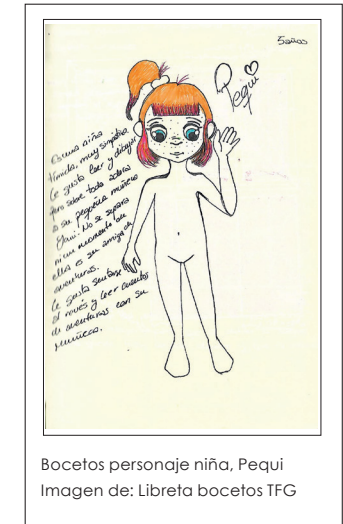 5 años
Pequi
Es una niña
tímida, muy simpática
le gusta leer y dibujar
pero sobre todo adora
a su pequeña muñeca
¡Yani! No se separa
ni un momento de
ella es su amiga de
aventuras.
Le gusta sentarse
al revés y leer cuentos
de aventuras con su
muñeca.
Bocetos personaje niña, Pequi
Imagen de: Libreta bocetos TFG